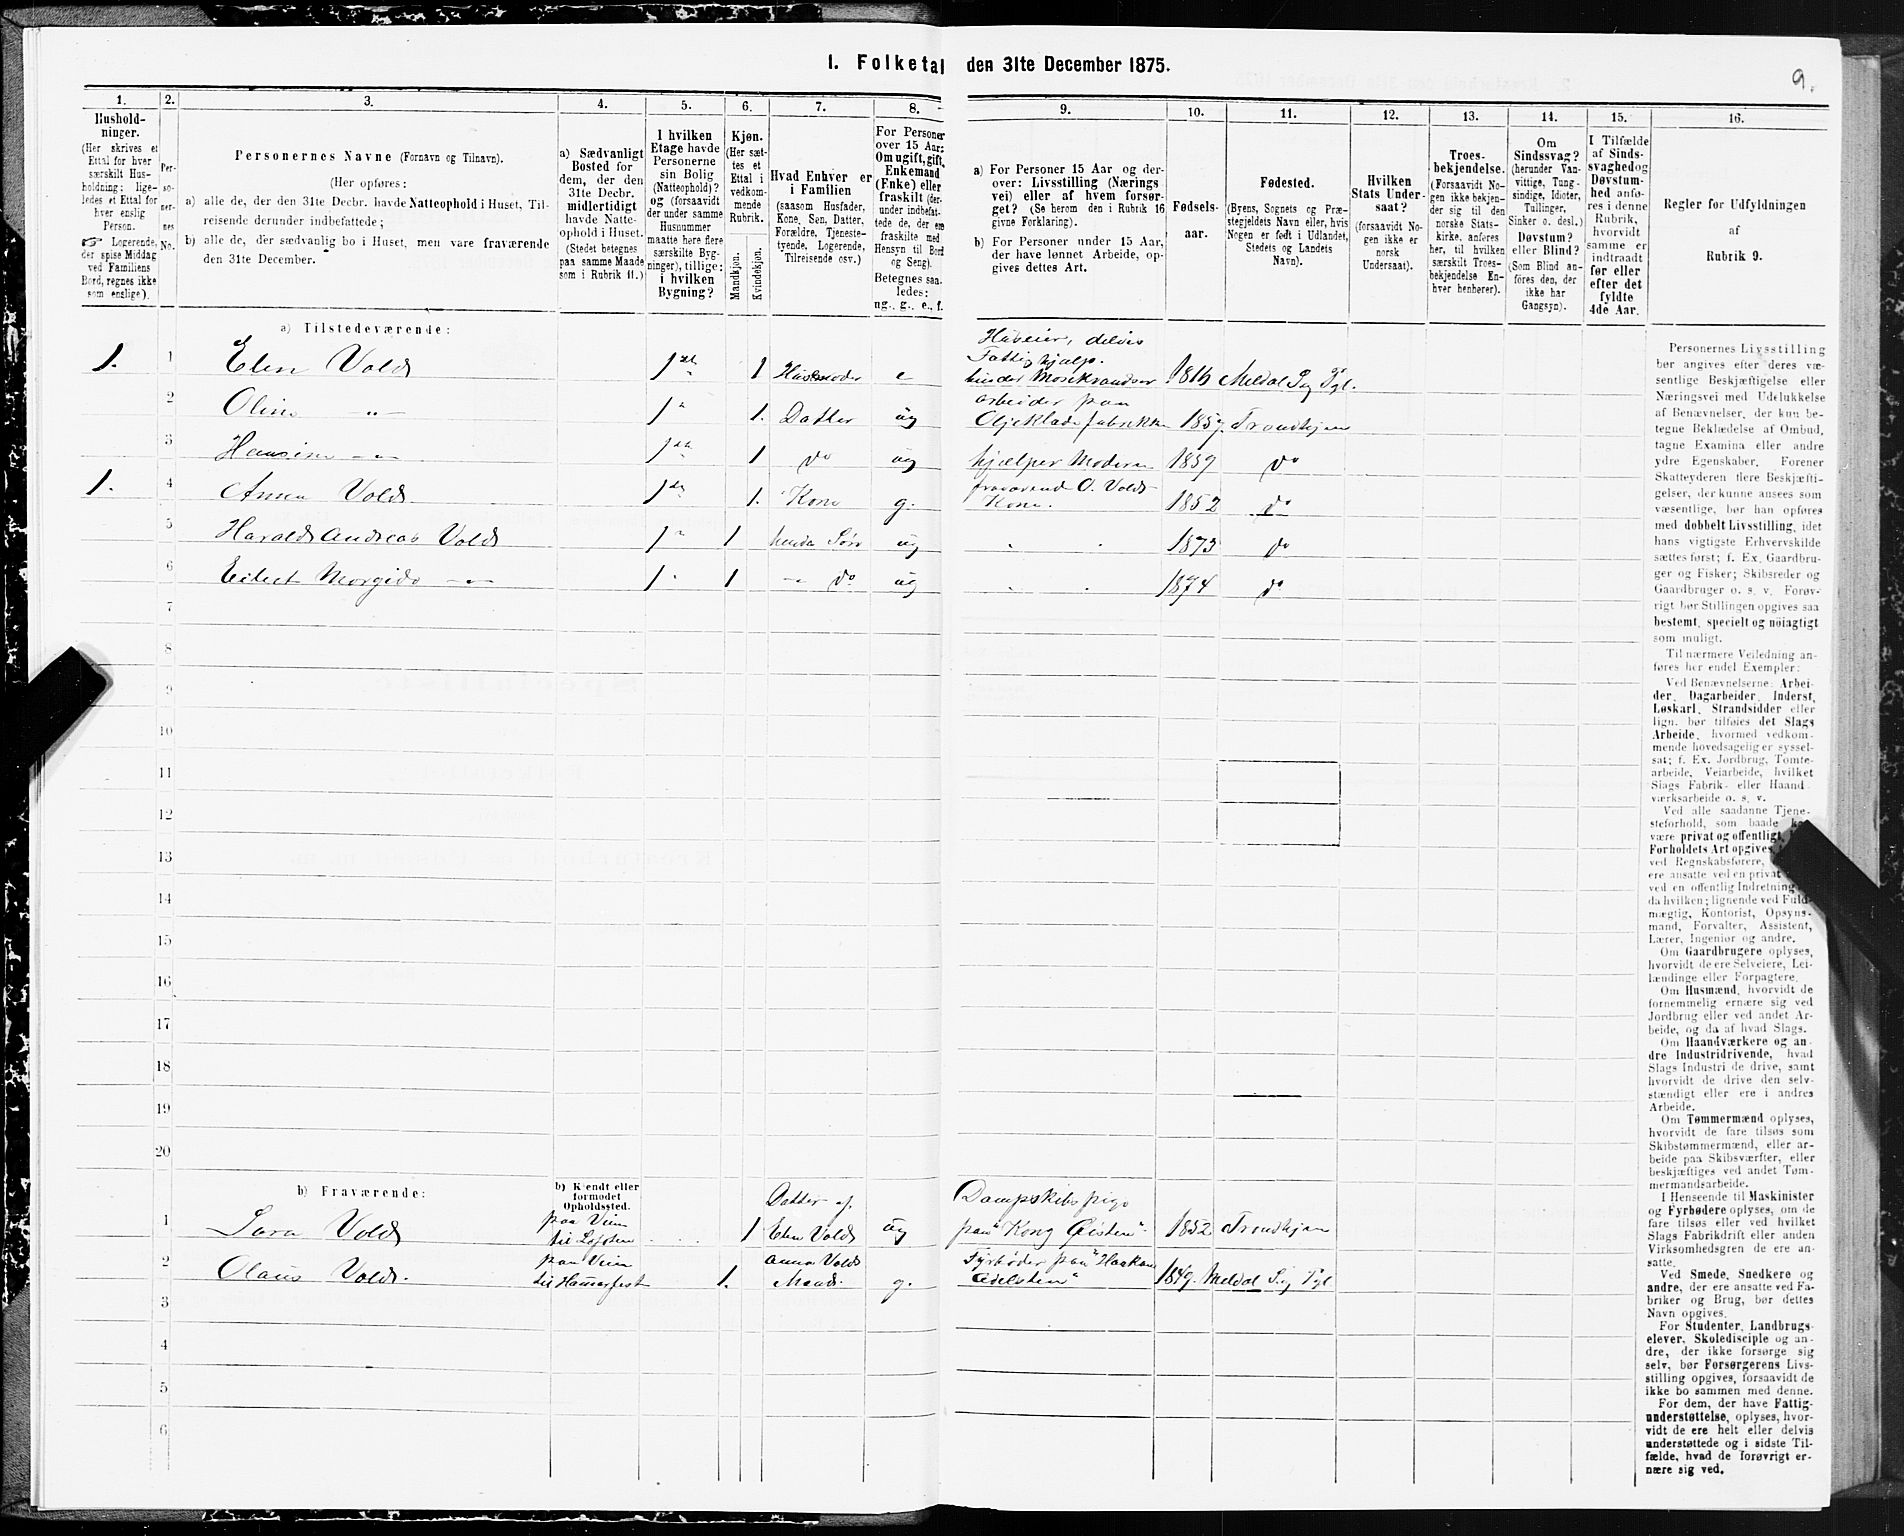 1. Folketal den 31te December 1875.
9.
1.
Hushold-
ninger.
(Her skrives et
Ettal for hver
særskilt Hus-
holdning; lige-
ledes et Ettal for
hver enslig
Person.
☞ Logerende,
der spise Middag
ved Familiens
Bord, regnes ikke
som enslige).
2.
Per-
so-
ner-
nes
No.
3.
Personernes Navne (Fornavn og Tilnavn).
(Her opføres:
a) alle de, der den 31te Decbr. havde Natteophold i Huset, Til-
reisende derunder indbefattede;
b) alle de, der sædvanlig bo i Huset, men vare fraværende
den 31te December.
4.
a) Sædvanligt
Bosted for
dem, der den
31te Decbr.
midlertidigt
havde Natte-
ophold i Huset.
(Stedet betegnes
paa samme Maade
som i Rubrik 11.)
5.
I hvilken
Etage havde
Personerne
sin Bolig
(Natteophold)?
og (forsaavidt
der under samme
Husnummer
maatte høre flere
særskilte Byg-
ninger), tillige:
i hvilken
Bygning?
6.
Kjøn.
(Her sæt-
tes et
Ettal i
vedkom-
mende
Rubrik.
Mandkjøn.
Kvindekjøn.
7.
Hvad Enhver er
i Familien
(saasom Husfader,
Kone, Søn, Datter,
Forældre, Tjeneste-
tyende, Logerende,
Tilreisende osv.)
8.
For Personer
over 15 Aar:
Om ugift, gift,
Enkemand
(Enke) eller
fraskilt (der-
under indbefat-
tede de, der ere
fraskilte med
Hensyn til Bord
og Seng).
Betegnes saa-
ledes:
ug., g., e., f.
9.
a) For Personer 15 Aar og der-
over: Livsstilling (Nærings
vei) eller af hvem forsør-
get? (Se herom den i Rubrik 16
givne Forklaring).
b) For Personer under 15 Aar,
der have lønnet Arbeide, op-
gives dettes Art.
10.
Fødsels-
aar.
11.
Fødested.
(Byens, Sognets og Præ-
stegjeldets Navn eller, hvis
Nogen er født i Udlandet,
Stedets og Landets
Navn).
12.
Hvilken
Stats Under-
saat?
(forsaavidt No-
gen ikke er
norsk
Undersaat).
13.
Troes-
bekjendelse.
(Forsaavidt No-
gen ikke bekjen-
der sig til den
norske Stats-
kirke, anføres
her, til hvilken
særskilt Troes-
bekjendelse En-
hver henhører).
14.
Om
Sindssvag?
(herunder Van-
vittige, Tung-
sindige, Idioter,
Tullinger,
Sinker o. desl.)
Døvstum?
eller Blind?
(Som Blind an-
føres den, der
ikke har
Gangsyn).
15.
I Tilfælde
af Sinds-
svaghed og
Døvstum-
hed anfø-
res i denne
Rubrik,
hvorvidt
samme er
indtraadt
før eller
efter det
fyldte
4de Aar.
16.
Regler for Udfyldningen
af
Rubrik 9.
a) Tilstedeværende:
1. 1 Elen Vold 1 1 Husmoder e Huseier, delvis Fattighjælp. 1816 Meldal Sg Pgl.
2 Oline -"- 1 1. Datter ug arbeider paa 1857. Trondhjem
3 1 1 do ug hjælper Moderen 1859 do
1. 4 Anna Vold 1 1. Kone g. fraværende O. Volds Kone. 1852 do
5 Harald Andreas Vold 1 1 hendes Søn ug 1873 do
6 1 1 -"- do ug 1874 do
7
8
9
10
11
12
13
14
15
16
17
18
19
20
b) Fraværende:
b) Kjendt eller
formodet
Opholdssted.
1 Sara Vold paa Veien til Lofoten 1 Datter af Elen Vold ug Dampskibspige 1852 Trondhjem
2 Olaus Vold. paa Veien til Hammerfest 1. Anna Volds Mand. g. Fyrbøder paa "Haakon Adelsten" 1849. Meldal Sg Pgl
3
4
5
6
Personernes Livsstilling
bør angives efter deres væ-
sentlige Beskjæftigelse eller
Næringsvei med Udelukkelse
af Benævnelser, der kun be-
tegne Beklædelse af Ombud,
tagne Examina eller andre
ydre Egenskaber. Forener
Skatteyderen flere Beskjæfti-
gelser, der kunne ansees som
væsentlige, bør han opføres
med dobbelt Livsstilling, idet
hans vigtigste Erhvervskilde
sættes først; f. Ex. Gaardbru-
ger og Fisker; Skibsreder og
Gaardbruger o. s. v. Forøv-
rigt bør Stillingen opgives saa
bestemt, specielt og nöiagtigt
som muligt.
Til nærmere Veiledning an-
føres her endel Exempler:
Ved Benævnelserne: Arbei-
der, Dagarbeider, Inderst,
Løskarl, Strandsidder eller
lign. bør tilføies det Slags
Arbeide, hvormed vedkom-
mende hovedsagelig er syssel-
sat; f. Ex. Jordbrug, Tomte-
arbeide, Veiarbeide, hvilket
Slags Fabrik- eller Haand-
værksarbeide o. s. v.
Ved alle saadanne Tjene-
steforhold, som baade
være privat og offentligt,
Forholdets Art opgives,
ved Regnskabsførere,
ere ansatte ved en privat
ved en offentlig Indretning
da hvilken; lignende ved Fuld-
mægtig, Kontorist, Opsyns-
mand, Forvalter, Assistent,
Lærer, Ingeniør og andre.
Om Gaardbrugere oplyses,
hvorvidt de ere Selveiere, Lei-
lændinge eller Forpagtere.
Om Husmænd, hvorvidt de
fornemmelig ernære sig ved
Jordbrug eller ved andet Ar-
beide, og da af hvad Slags.
Om Haandværkere og an-
dre Industridrivende, hvad
Slags Industri de drive, samt
hvorvidt de drive den selv-
stændigt eller ere i andres
Arbeide.
Om Tømmermænd oplyses,
hvorvidt de fare tilsøs som
Skibstømmermænd, eller ar-
beide paa Skibsværfter, eller
beskjæftiges ved andet Tøm-
mermandsarbeide.
I Henseende til Maskinister
og Fyrbødere oplyses, om de
fare tilsøs eller ved hvilket
Slags Fabrikdrift eller anden
Virksomhedsgren de ere an-
satte.
Ved Smede, Snedkere og
andre, der ere ansatte ved Fa-
briker og Brug, bør dettes
Navn opgives.
For Studenter, Landbrugs-
elever, Skoledisciple og an-
dre, der ikke forsørge sig
selv, bør Forsørgerens Livs-
stilling opgives, forsaavidt de
ikke bo sammen med denne.
For dem, der have Fattig-
understøttelse, oplyses, hvor-
vidt de ere helt eller delvis
understøttede og i sidste Til-
fælde, hvad de forøvrigt er-
nære sig ved.